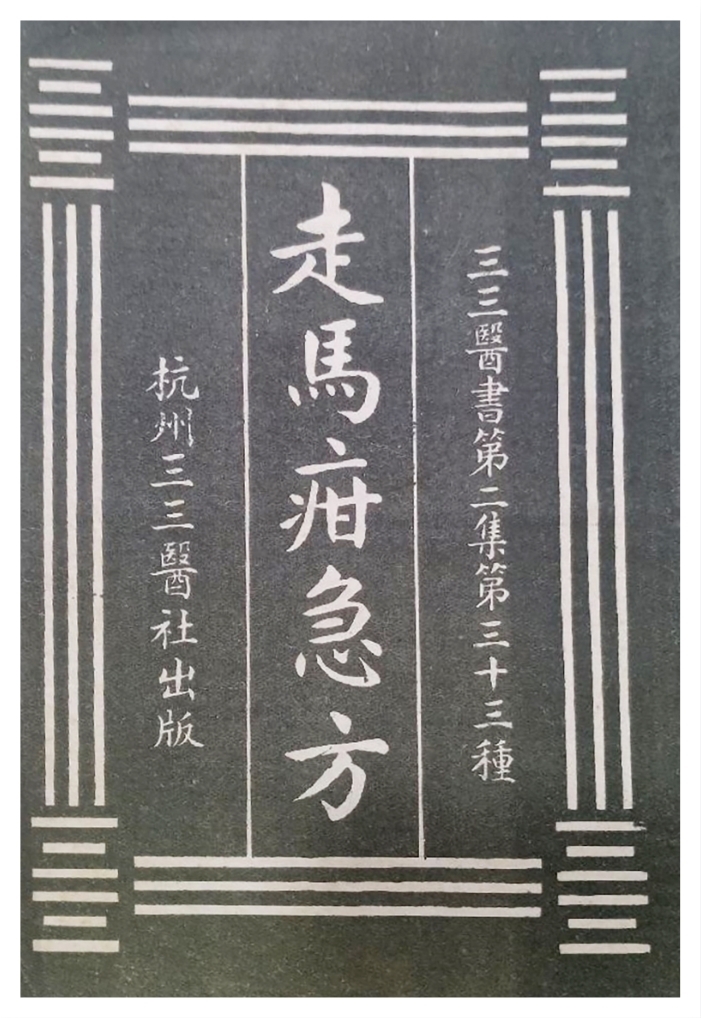 三三醫書第二集第三十三種
走馬疳急方
杭州三三醫社出版